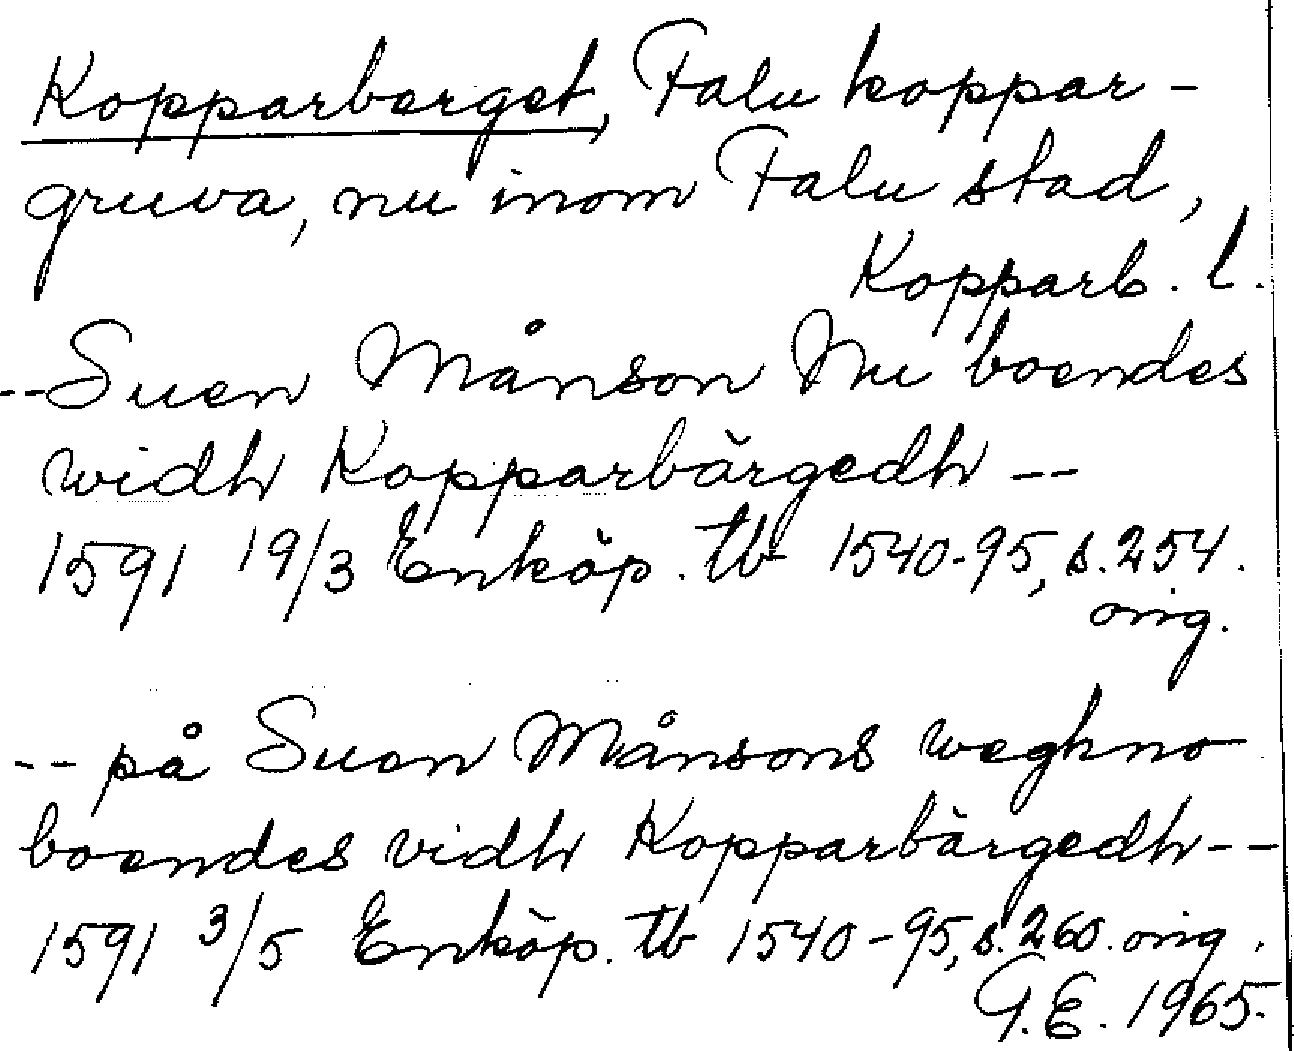 Kopparberget, Falu koppar-
gruva, nu inom Falu stad,
Kopparb. l.
--Suen Månson Nu boendes
widh Kopparbärgedh --
1591 19/3 Enköp. tb 1540-95, s. 254.
orig.
-- på Suen Månsons weghno
boendes vidh Kopparbärgedh--
1591 3/5 Enköp. tb 1540-95, s. 260. orig.
G.E. 1965.